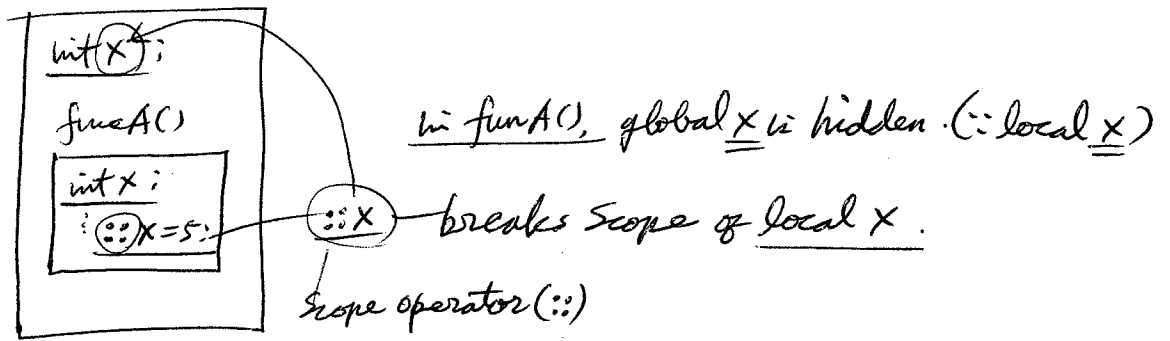 int x ;
funcA()
int x ;
:: x = 5 ;
in funA(), global x is hidden. (∵ local x)
:: x
breaks scope of local x .
Scope operator (::)